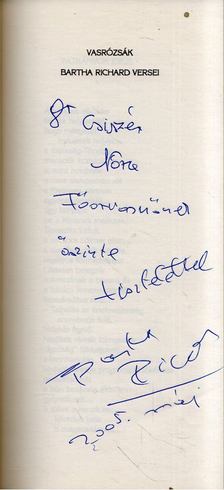 VASRÓZSÁK
BARTHA RICHARD VERSEI
Dr Csiszér
Nóra
Főorvosnőnek
őszinte
tisztelettel
Bartha
Richard
2005. máj